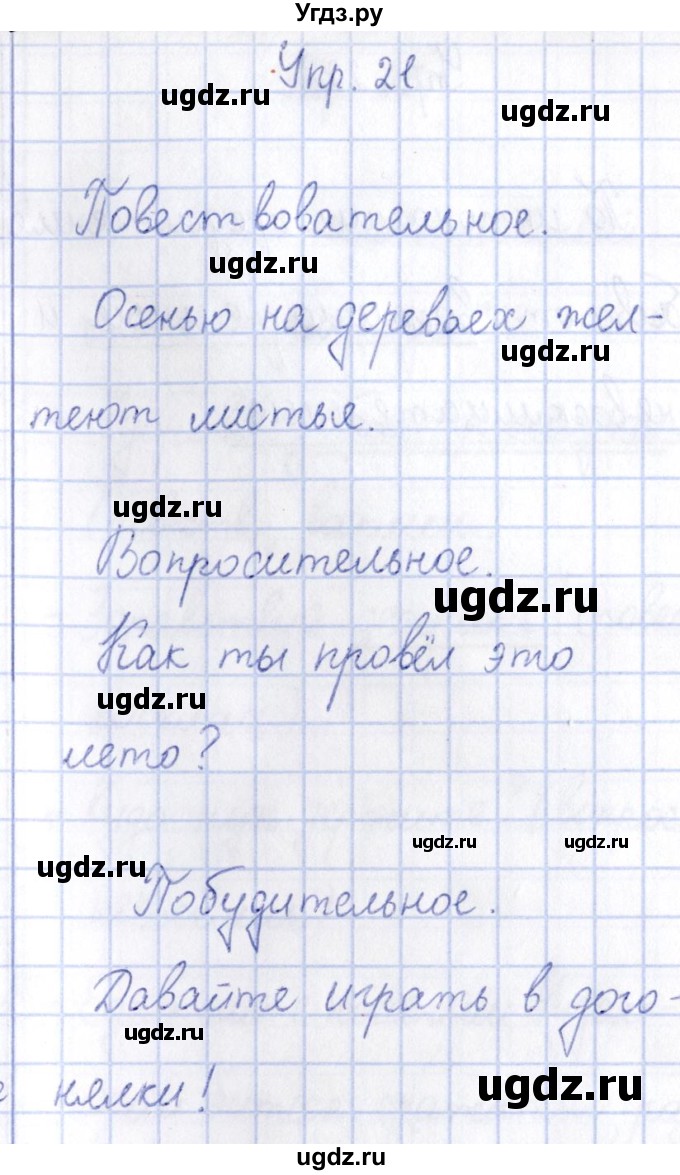 Угдз.ру
Упр. 21
ugdz.ru
ugdz.ru
Повествовательное.
ugdz.ru
Осенью на деревьях жел-
ugdz.ru
теют листья.
ugdz.ru
Вопросительное.
ugdz.ru
Как ты провёл это
ugdz.ru
лето?
ugdz.ru
ugdz.ru
ugdz.ru
Побудительное.
Давайте играть в дого-
ugdz.ru
нялки!
ugdz.ru
ugdz.ru